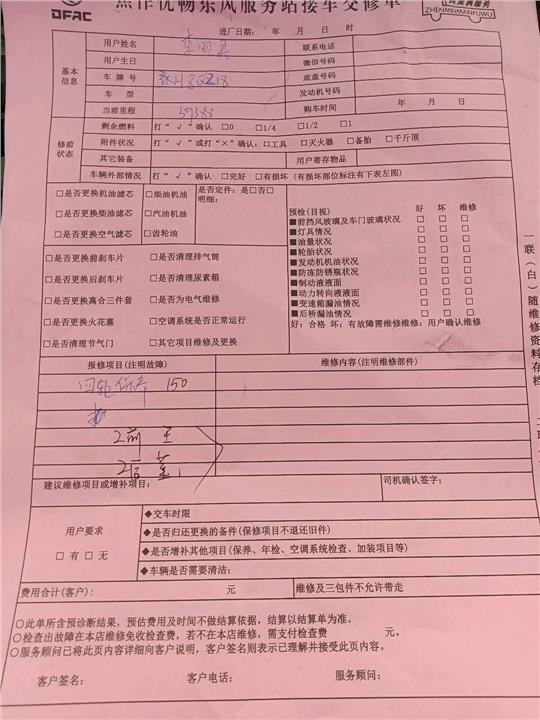 焦作优畅东风服务站接车交修单
DFAC
ZHENMEIMANFUWU
进厂日期: 年 月 日 时
基本信息
用户姓名 联系电话
用户生日 微信号码
车牌号 底盘号码
车型 发动机号码
当前里程 59383 购车时间 年 月 日
修前状态
剩余燃料 打“√”确认 □0 □1/4 □1/2 □1
附件状况 打“√”或打“×”确认:□工具 □灭火器 □备胎 □千斤顶
其它装备 用户寄存物品
车辆外部情况 打“√”确认 □完好 □有损坏(有损坏部位标注有下表左图)
□是否更换机油滤芯 □柴油机油 是否定件: 是□否□
明细:
□是否更换柴油滤芯 □汽油机油
□是否更换空气滤芯 □齿轮油
□是否更换前刹车片 □是否清理排气筒
□是否更换后刹车片 □是否清理尿素箱
□是否更换离合三件套 □是否为电气维修
□是否更换火花塞 □空调系统是否正常运行
□是否清理节气门 □其它项目维修及更换
预检(目视) 好 坏 维修
■前挡风玻璃及车门玻璃状况 □ □ □
■灯具情况 □ □ □
■油量状况 □ □ □
■轮胎状况 □ □ □
■发动机机油状况 □ □ □
■防冻防锈瓶状况 □ □ □
■制动液液面 □ □ □
■动力转向液液面 □ □ □
■变速箱漏油情况 □ □ □
■后桥漏油情况 □ □ □
好: 合格 坏: 有故障需维修维修: 用户确认维修
一联(白)随维修资料存档
报修项目(注明故障) 维修内容(注明维修部件)
150
2前
2后
建议维修项目或增补项目: 司机确认签字:
用户要求
□有 □无
◆交车时限
◆是否归还更换的备件(保修项目不退还旧件)
◆是否增补其他项目(保养、年检、空调系统检查、加装项目等)
◆车辆是否需要清洁:
费用合计(客户): 元 维修及三包件不允许带走
○此单所含预诊断结果,预估费用及时间不做结算依据,结算以结算单为准。
○检查出故障在本店维修免收检查费,若不在本店维修,需支付检查费 元。
○服务顾问已将此页内容详细向客户说明,客户签名则表示已理解并接受此页内容。
客户签名: 客户电话: 服务顾问: